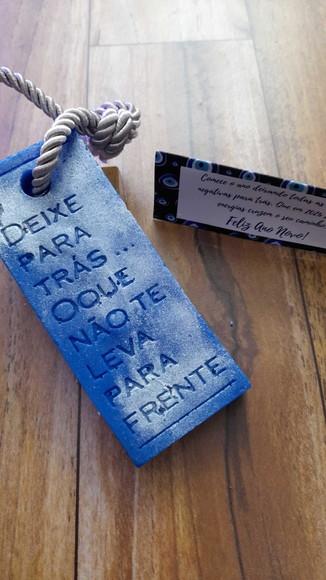 DEIXE
PARA
TRÁS ...
OQUE
NÃO TE
LEVA
PARA
FRENTE
Comece o ano deixando todas as
negativas para trás. Que em 2024
energias cruzem o seu caminho
Feliz Ano Novo!